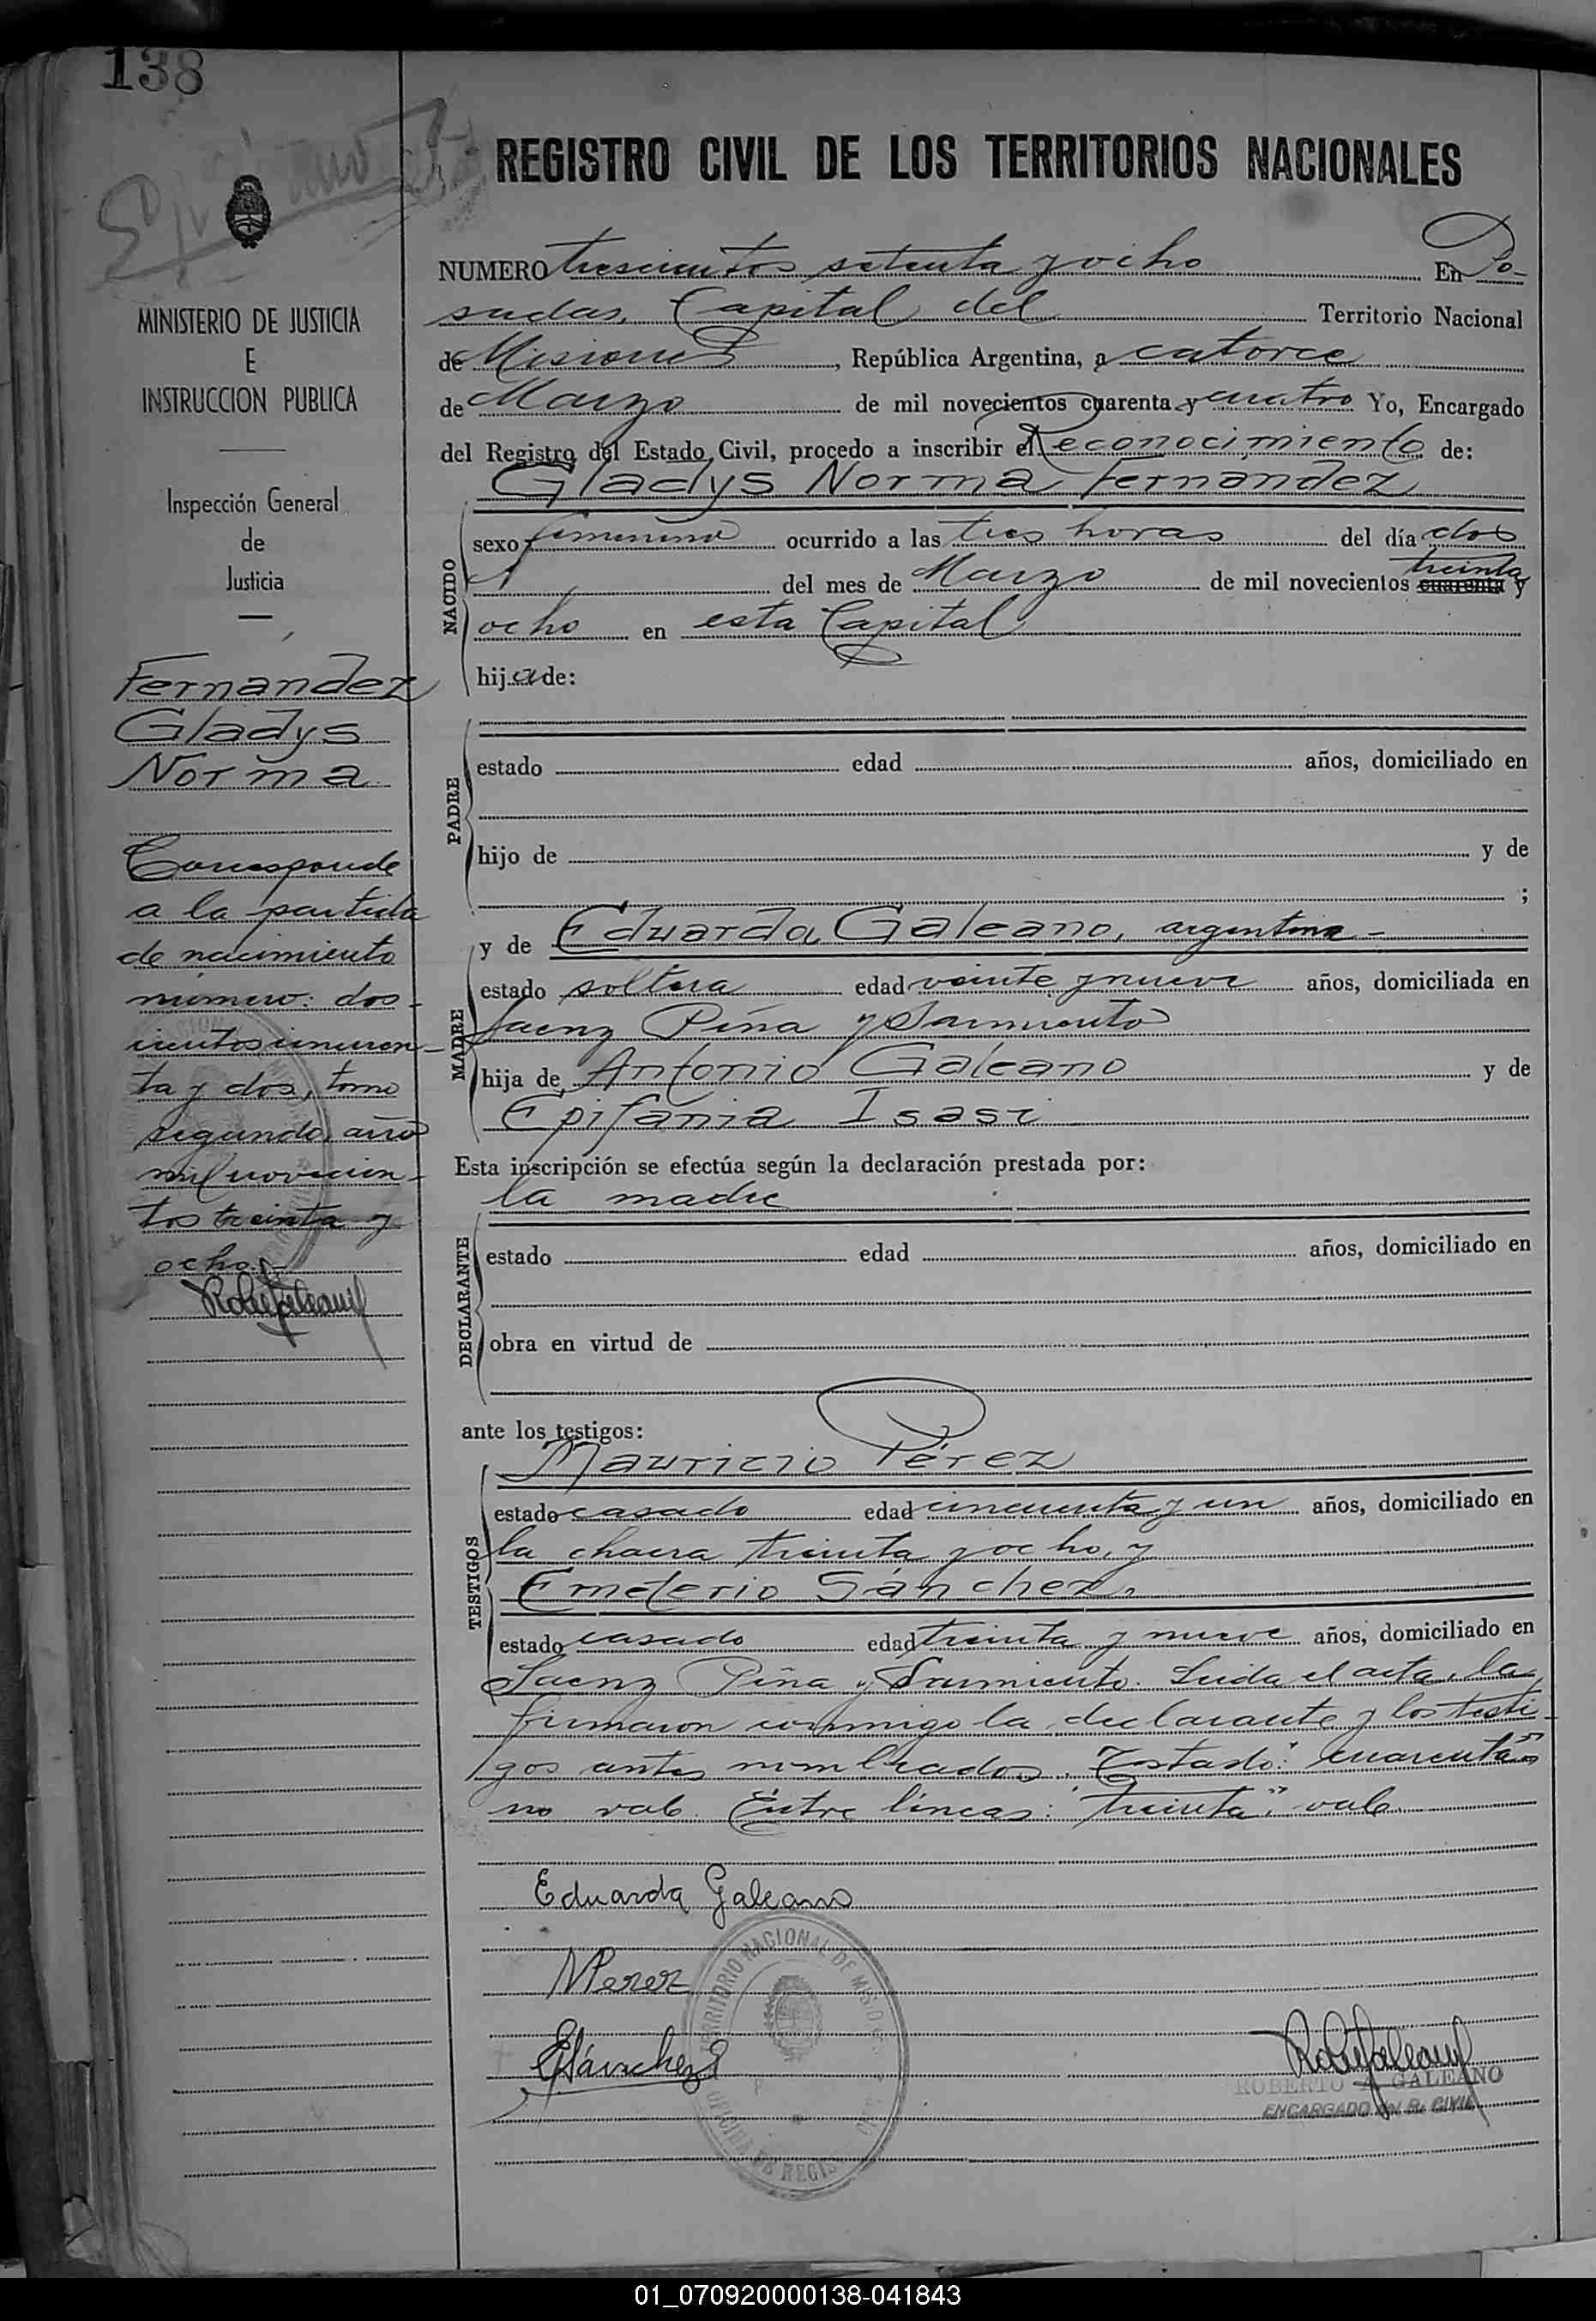 138
REGISTRO CIVIL DE LOS TERRITORIOS NACIONALES
MINISTERIO DE JUSTICIA
E
INSTRUCCION PUBLICA
Inspección General
de
Justicia
Fernandez
Gladys
Norma
Corresponde
a la partida
de nacimiento
número: dos-
cientos cincuen-
ta y dos, tomo
segundo, año
mil novecien-
tos treinta y
ocho.
NUMERO trescientos setenta y ocho En Po-
sadas, Capital del Territorio Nacional
de Misiones, República Argentina, a catorce
de Marzo de mil novecientos cuarenta y cuatro Yo, Encargado
del Registro del Estado Civil, procedo a inscribir el Reconocimiento de:
Gladys Norma Fernandez
NACIDO
sexo femenino ocurrido a las tres horas del día dos
treinta
del mes de Marzo de mil novecientos cuarenta y
ocho en esta Capital
hija de:
PADRE
estado edad años, domiciliado en
hijo de y de
;
MADRE
y de Eduarda Galeano, argentina-
estado soltera edad veinte y nueve años, domiciliada en
Saenz Peña y Sarmiento
hija de Antonio Galeano y de
Epifania Isasi
Esta inscripción se efectúa según la declaración prestada por:
la madre
DECLARANTE
estado edad años, domiciliado en
obra en virtud de
ante los testigos:
TESTIGOS
Mauricio Pérez
estado casado edad cincuenta y un años, domiciliado en
la chacra treinta y ocho, y
Emeterio Sánchez,
estado casado edad treinta y nueve años, domiciliado en
Saenz Peña y Sarmiento. Leida el acta, la
firmaron conmigo la declarante y los testi-
gos antes nombrados. Testado: "cuarenta"
no vale. Entre líneas: "treinta", vale
Eduarda Galeano
MPerez
ESánchez
TERRITORIO NACIONAL DE MISIONES
ROBERTO A. GALEANO
ENCARGADO del R. CIVIL
01_070920000138-041843